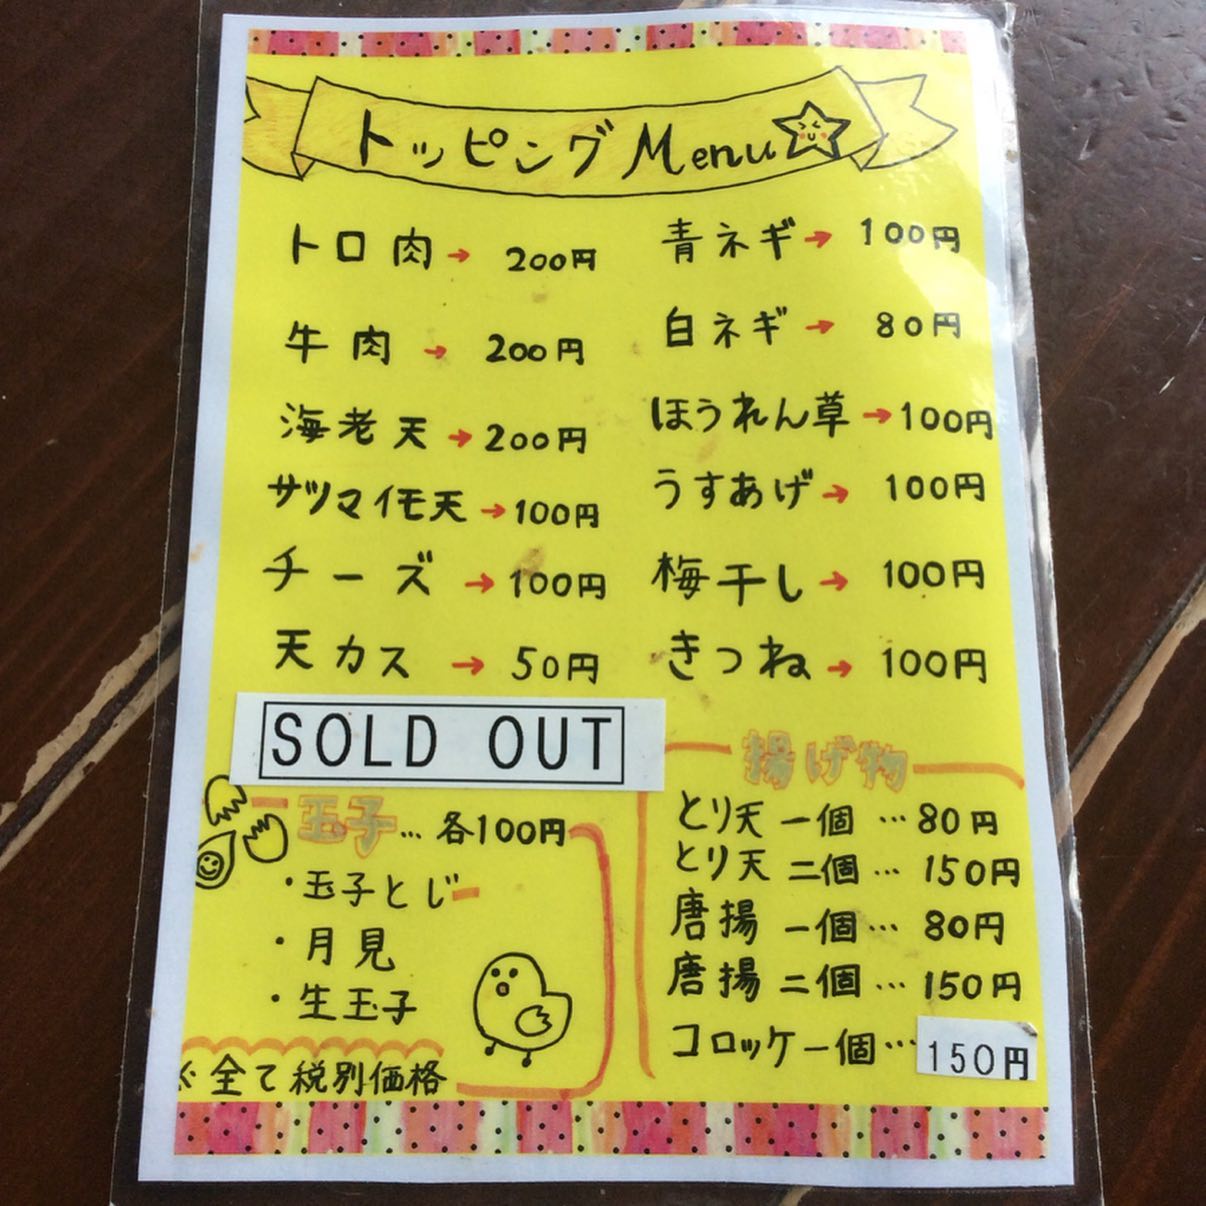 トッピングMenu
トロ肉→ 200円
牛肉→ 200円
海老天→200円
サツマイモ天→100円
チーズ→100円
天カス→50円
SOLD OUT
青ネギ→100円
白ネギ→80円
ほうれん草→100円
うすあげ→100円
梅干し→100円
きつね→100円
玉子…各100円
・玉子とじ
・月見
・生玉子
※全て税別価格
揚げ物
とり天 一個…80円
とり天 二個…150円
唐揚 一個…80円
唐揚 二個…150円
コロッケ一個…150円